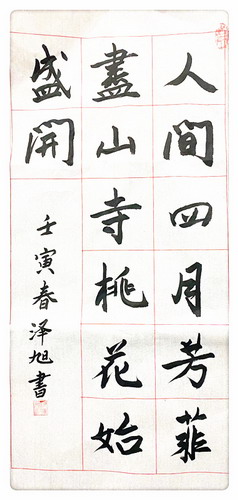 人間四月芳菲
盡山寺桃花始
盛開
壬寅春泽旭書